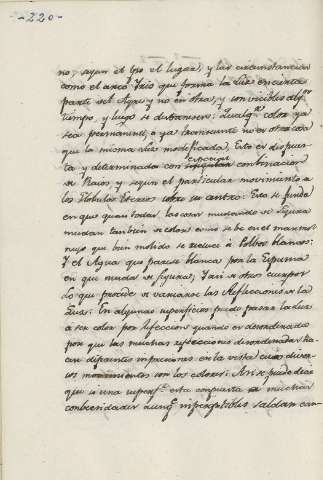 -220-
no, segun el tpo el lugar, y las circunstancias
como el arco Iris que forma la Luz en cierta
parte del Ayre y no en otra, y son visibles algn
tiempo, y luego se distraxeron: qualqr color ya
sea permanente, o ya transeunte no es otra cosa
que la misma Luz modificada, Esto es dispues-
ta y determinada con especial combinacion
de Raios y segun el particular movimiento a
los Globulos Etereos sobre su centro: Esto se funda
en que quasi todas las cosas mudando de Figura
mudan tambien de color como se be en el marmol
rujo que bien molido se reduce à Polbos blancos:
Y el Agua que parece blanca por la Espuma
en que muda de figura; Y asi de otros cuerpos
Lo que procede de variarse las Reflecciones de la
Luz: En algunas superficies puede pasar la Luz
à ser color por refleccion quando es desordenada
por que las muchas reflecciones desordenadas ha-
cen diferentes impreciones en la vista cuios diver-
sos movimientos son los colores: Asi se puede decir
que si una superfe esta compuesta de muchas
conbecidades aunqe imperceptibles saldran can-